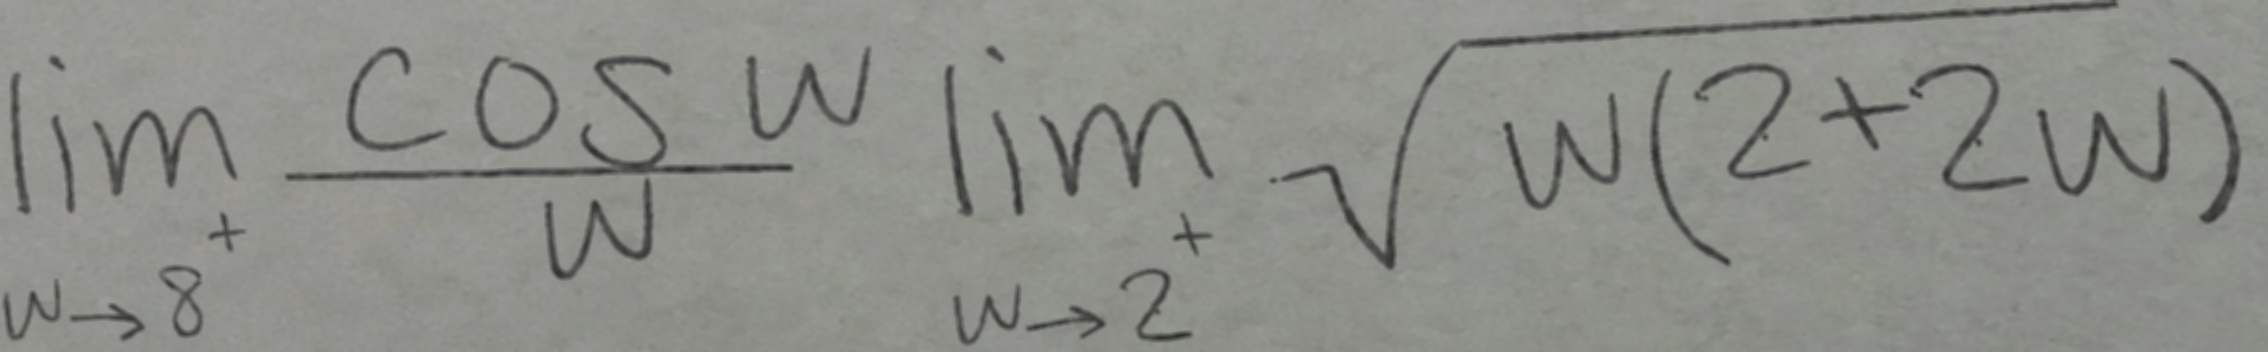 \lim_{w \to 8^+} \frac{\cos w}{w} \lim_{w \to 2^+} \sqrt{w(2+2w)}